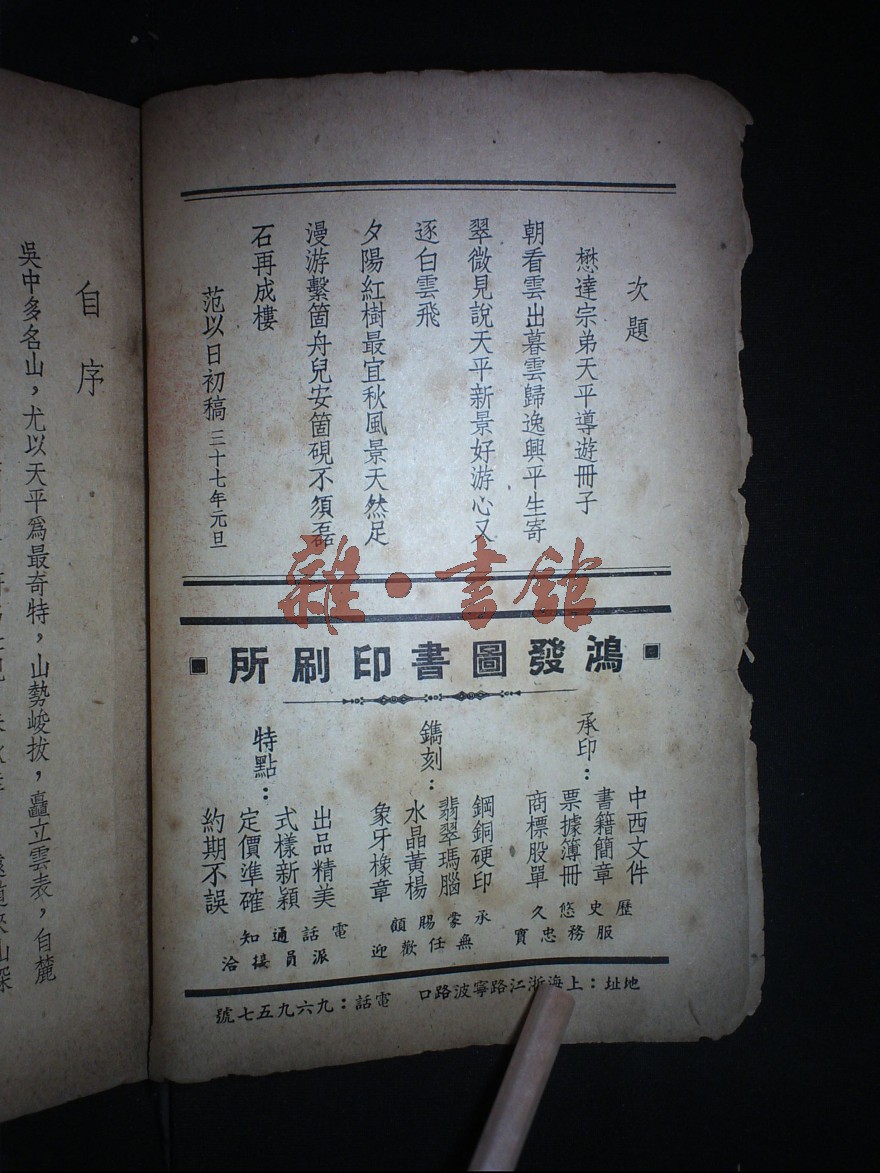 次題
懋達宗弟天平導遊冊子
朝看雲出暮雲歸逸興平生寄
翠微見說天平新景好游心又
逐白雲飛
夕陽紅樹最宜秋風景天然足
漫游繫箇舟兒安箇硯不須磊
石再成樓
范以日初稿 三十七年元旦
雜·書館
鴻發圖書印刷所
承印：
中西文件
書籍簡章
票據簿冊
商標股單
鐫刻：
鋼銅硬印
翡翠瑪腦
水晶黃楊
象牙橡章
特點：
出品精美
式樣新穎
定價準確
約期不誤
歷史悠久
服務忠實
承蒙賜顧
無任歡迎
電話通知
派員接洽
地址：上海浙江路寧波路口 電話：九六九五七號
自序
吳中多名山，尤以天平爲最奇特，山勢峻拔，矗立雲表，自麓